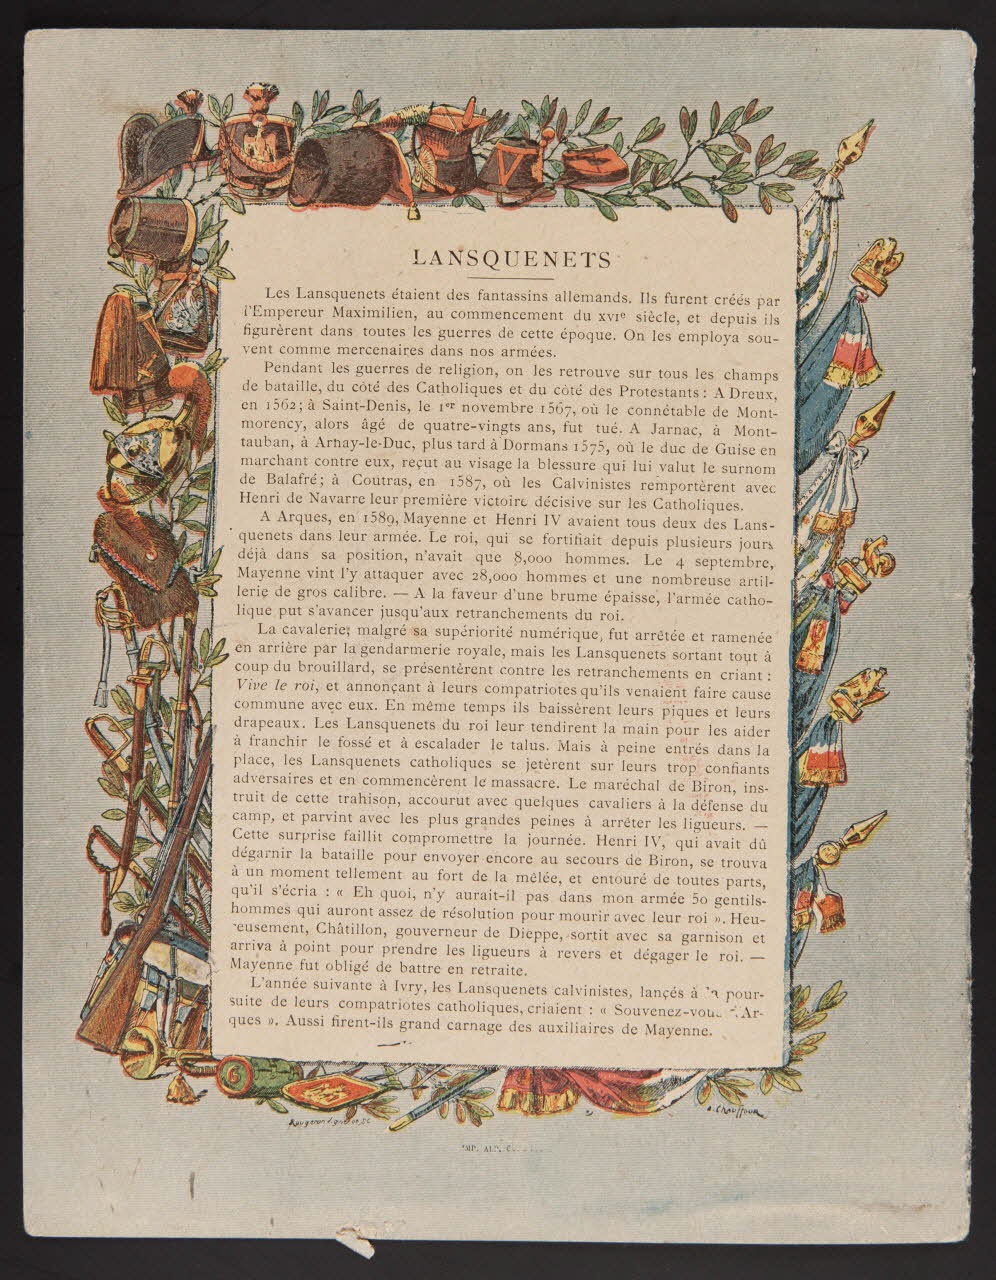 LANSQUENETS
Les Lansquenets étaient des fantassins allemands. Ils furent créés par
l'Empereur Maximilien, au commencement du XVIe siècle, et depuis ils
figurèrent dans toutes les guerres de cette époque. On les employa sou-
vent comme mercenaires dans nos armées.
Pendant les guerres de religion, on les retrouve sur tous les champs
de bataille, du côté des Catholiques et du côté des Protestants : A Dreux,
en 1562; à Saint-Denis, le 1er novembre 1567, où le connétable de Mont-
morency, alors âgé de quatre-vingts ans, fut tué. A Jarnac, à Mont-
tauban, à Arnay-le-Duc, plus tard à Dormans 1575, où le duc de Guise en
marchant contre eux, reçut au visage la blessure qui lui valut le surnom
de Balafré; à Coutras, en 1587, où les Calvinistes remportèrent avec
Henri de Navarre leur première victoire décisive sur les Catholiques.
A Arques, en 1589, Mayenne et Henri IV avaient tous deux des Lans-
quenets dans leur armée. Le roi, qui se fortifiait depuis plusieurs jours
déjà dans sa position, n'avait que 8,000 hommes. Le 4 septembre,
Mayenne vint l'y attaquer avec 28,000 hommes et une nombreuse artil-
lerie de gros calibre. — A la faveur d'une brume épaisse, l'armée catho-
lique put s'avancer jusqu'aux retranchements du roi.
La cavalerie, malgré sa supériorité numérique, fut arrêtée et ramenée
en arrière par la gendarmerie royale, mais les Lansquenets sortant tout à
coup du brouillard, se présentèrent contre les retranchements en criant :
Vive le roi, et annonçant à leurs compatriotes qu'ils venaient faire cause
commune avec eux. En même temps ils baissèrent leurs piques et leurs
drapeaux. Les Lansquenets du roi leur tendirent la main pour les aider
à franchir le fossé et à escalader le talus. Mais à peine entrés dans la
place, les Lansquenets catholiques se jetèrent sur leurs trop confiants
adversaires et en commencèrent le massacre. Le maréchal de Biron, ins-
truit de cette trahison, accourut avec quelques cavaliers à la défense du
camp, et parvint avec les plus grandes peines à arrêter les ligueurs. —
Cette surprise faillit compromettre la journée. Henri IV, qui avait dû
dégarnir la bataille pour envoyer encore au secours de Biron, se trouva
à un moment tellement au fort de la mêlée, et entouré de toutes parts,
qu'il s'écria : « Eh quoi, n'y aurait-il pas dans mon armée 50 gentils-
hommes qui auront assez de résolution pour mourir avec leur roi ». Heu-
reusement, Châtillon, gouverneur de Dieppe, sortit avec sa garnison et
arriva à point pour prendre les ligueurs à revers et dégager le roi. —
Mayenne fut obligé de battre en retraite.
L'année suivante à Ivry, les Lansquenets calvinistes, lancés à la pour-
suite de leurs compatriotes catholiques, criaient : « Souvenez-vous d'Ar-
ques ». Aussi firent-ils grand carnage des auxiliaires de Mayenne.
G. Chauffour
IMP.